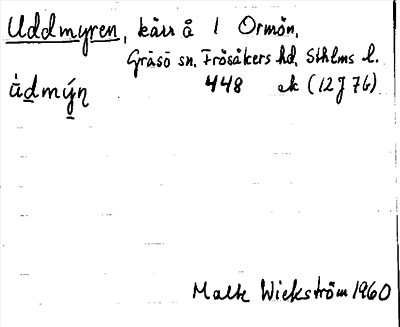 Uddmyren, kärr å 1 Ormön,
Gräsö sn. Frösåkers hd. Sthlms l.
ùdmýn̥ 448 ek (12J7b).
Malte Wickström 1960